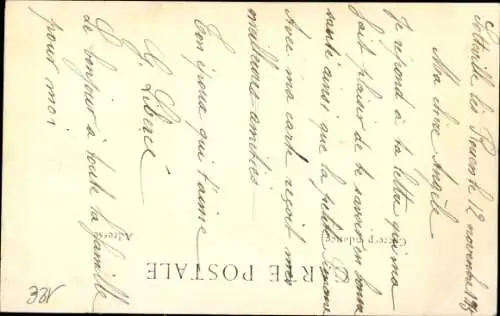 Sotteville les Rouen le 12 novembre
Ma chère Angèle
Je répond à ta lettre qui ma
fait plaisir de te savoir en bonne
santé ainsi que la petite Simone
Avec ma carte reçoit mes
meilleures amitiés
Ton époux qui t'aime
G Liberé
Le bonjour à toute la famille
pour moi
CARTE POSTALE
Correspondance
Adresse